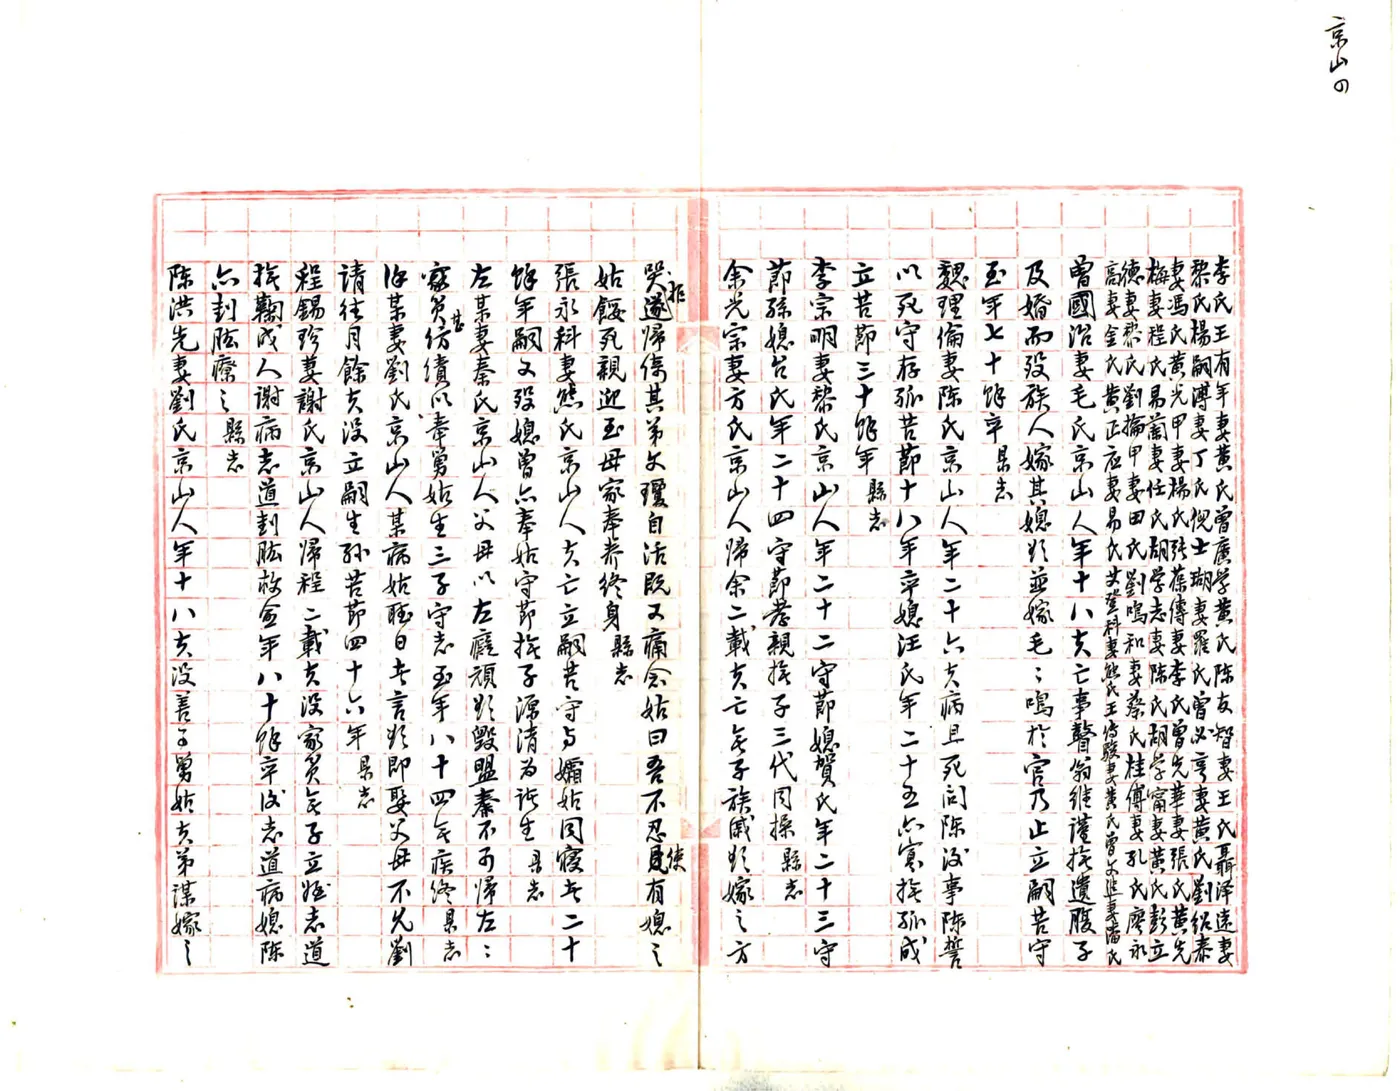 京山四
李氏王有年妻黄氏曾廣學黄氏陳友智妻王氏聶澤遠妻
黎氏楊嗣溥妻丁氏倪士瑚妻羅氏曾必亨妻黄氏劉紹泰
妻馮氏黄光甲妻楊氏張葆傳妻李氏曾先華妻張氏黄先
梅妻程氏易蘭妻任氏胡學志妻陳氏胡學甯妻黄氏彭立
德妻黎氏劉掄甲妻田氏劉鳴和妻蔡氏桂傅妻孔氏廖永
高妻金氏黄正应妻易氏艾登科妻熊氏王傳駿妻黄氏曾文進妻潘氏
曾國治妻毛氏京山人年十八夫亡事瞽翁維謹撫遺腹子
及婚而殁族人嫁其媳欲並嫁毛毛鳴於官乃止立嗣苦守
至年七十餘卒 县志
魏理倫妻陳氏京山人年二十六夫病且死问陈後事陈誓
以死守存孤苦節十八年卒媳汪氏年二十五亦寡撫孤成
立苦節三十餘年 縣志
李宗明妻黎氏京山人年二十二守節媳賀氏年二十三守
節孫媳台氏年二十四守節孝親撫子三代同操 縣志
余光宗妻方氏京山人帰余二載夫亡无子族戚欲嫁之方
拒
哭遂帰傍其弟文瓊自活既又痛念姑曰吾不忍使有媳之
姑餒死親迎至母家奉养终身 縣志
張永科妻熊氏京山人夫亡立嗣苦守与孀姑同寝者二十
餘年嗣又殁媳曾亦奉姑守節撫子源清为诸生 县志
左某妻秦氏京山人父母以左癡頑欲毀盟秦不可帰左左
家貧甚紡績以奉舅姑生三子守志至年八十四无疾终 县志
徐某妻劉氏京山人某病姑聴日者言欲即娶父母不允劉
请往月餘夫没立嗣生孙苦節四十六年 县志
程錫珍妻謝氏京山人帰程二載夫没家貧无子立姪志道
撫鞠成人謝病志道刲肱救愈年八十餘卒後志道病媳陈
亦刲肱療之 縣志
陈洪先妻劉氏京山人年十八夫没善事舅姑夫弟謀嫁之